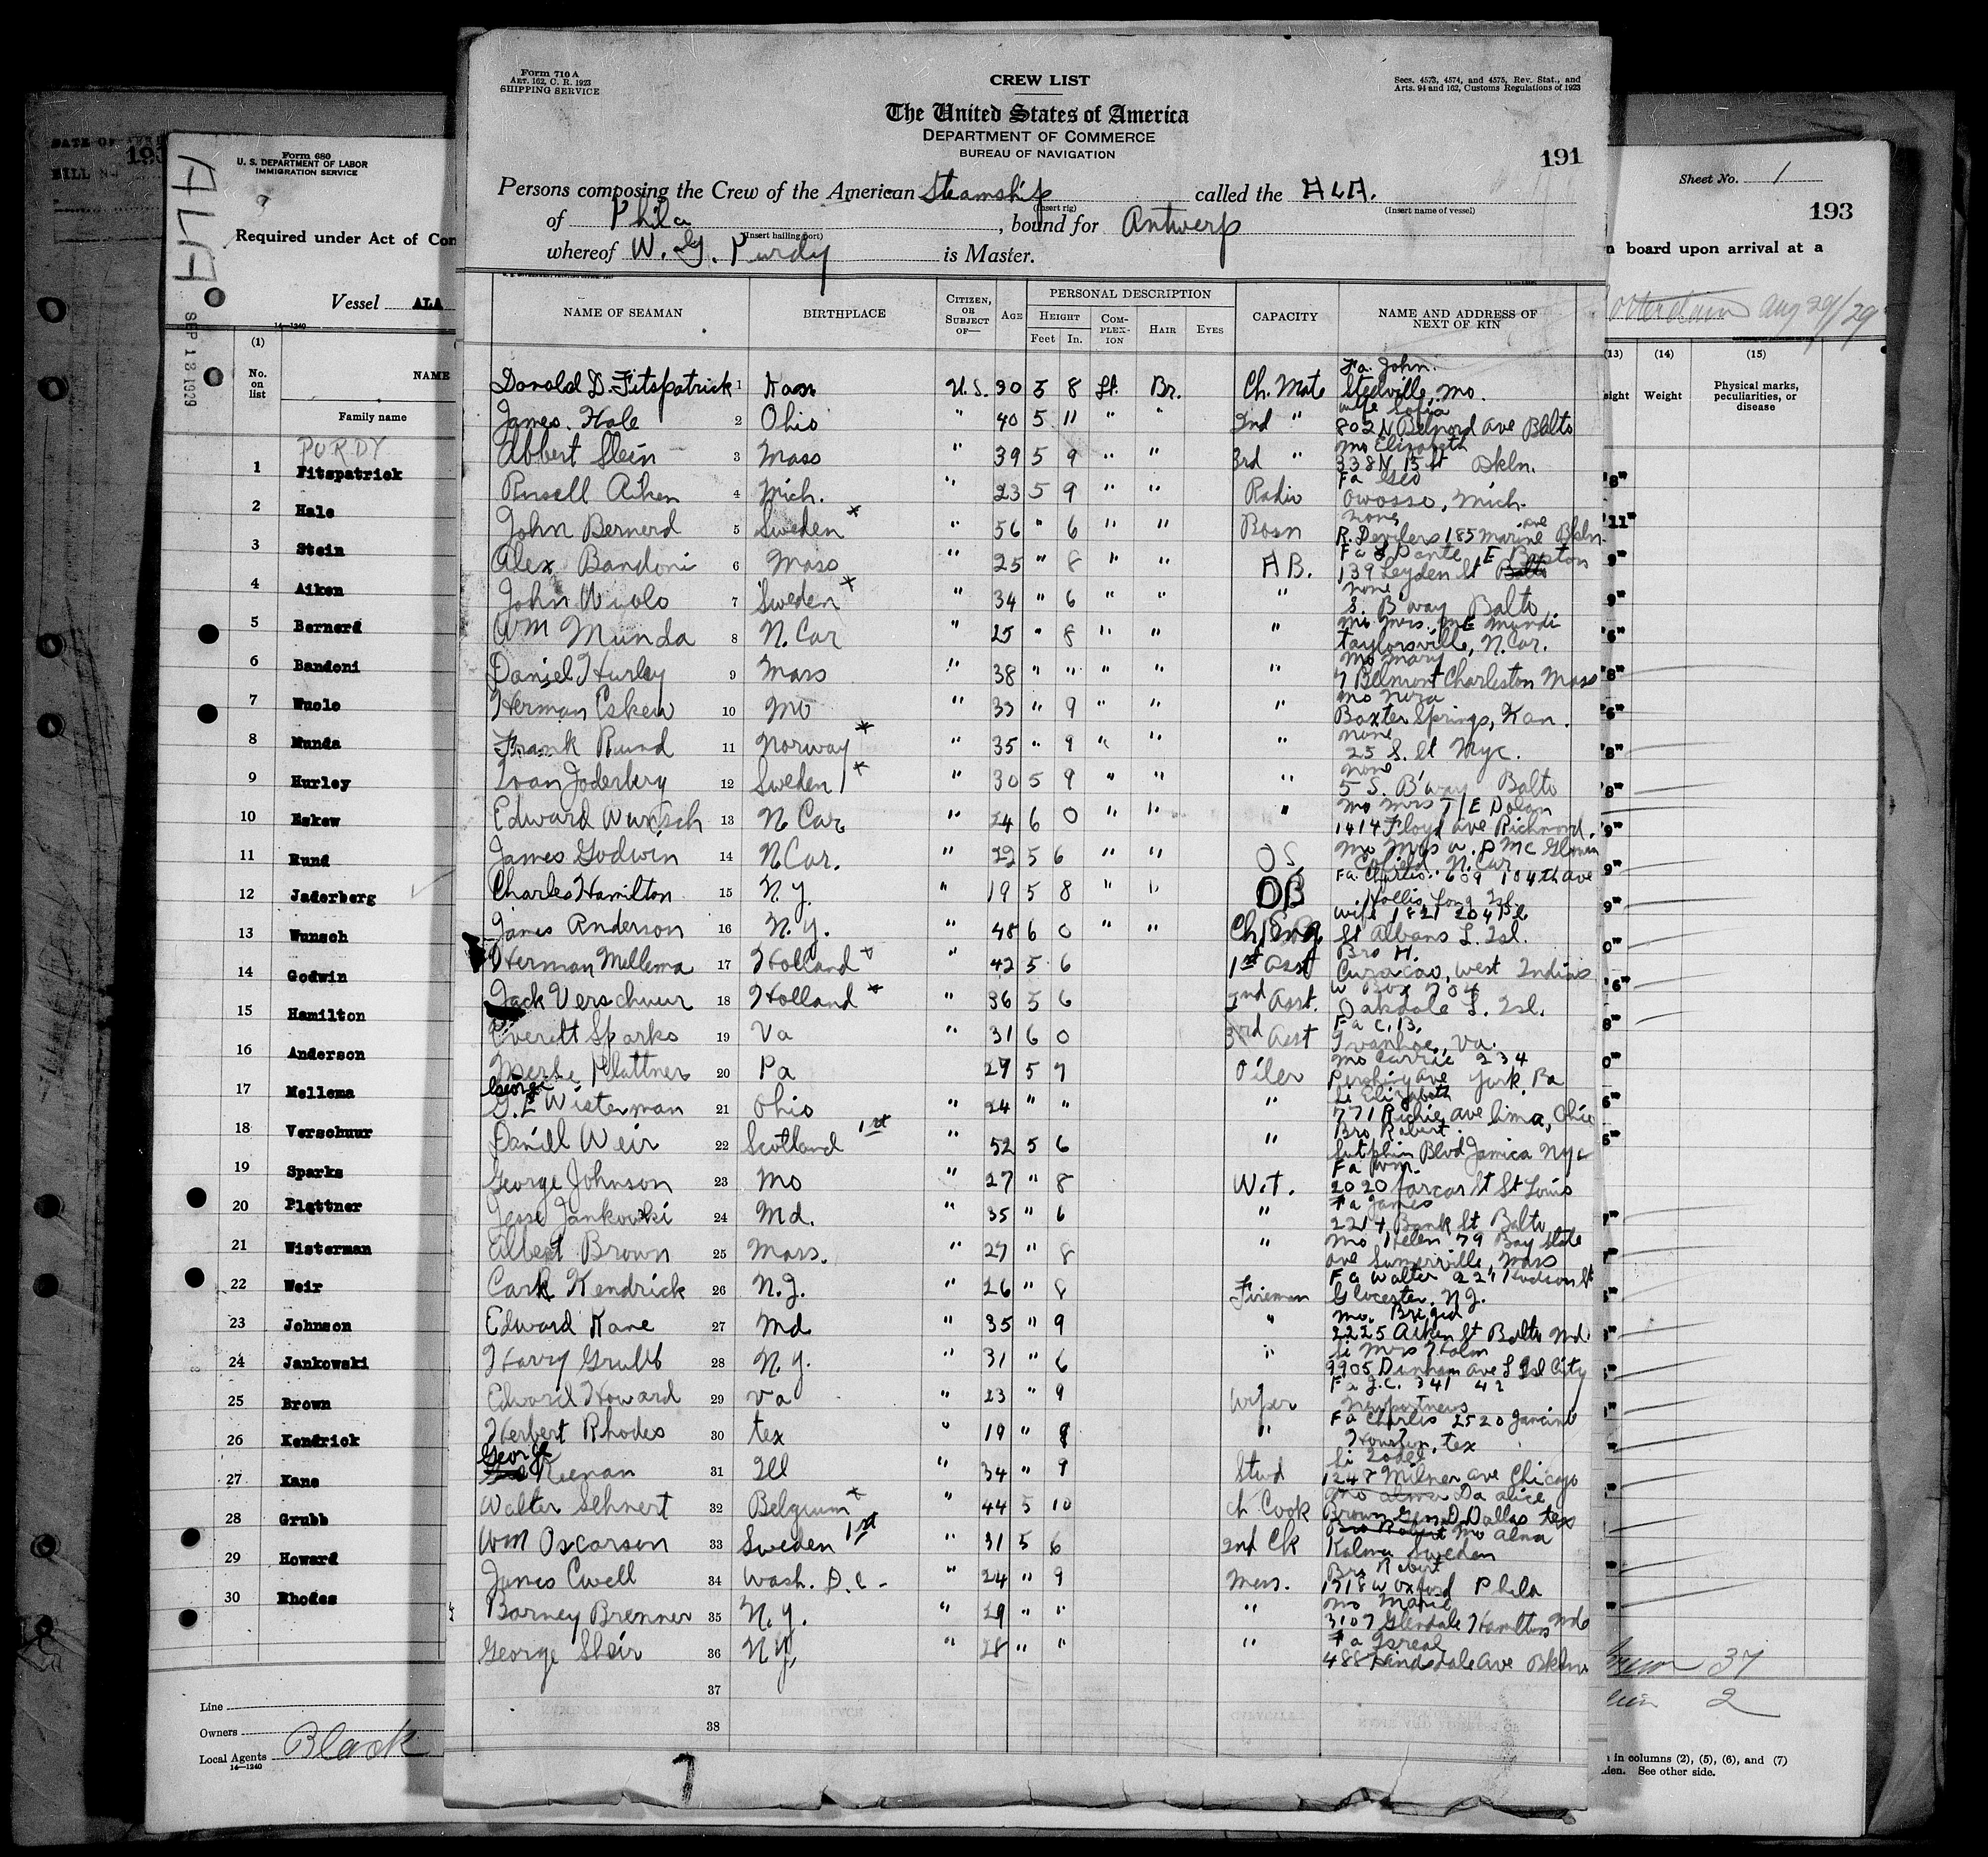 Form 710 A
ART. 162, C. R. 1923
SHIPPING SERVICE
CREW LIST
Secs. 4573, 4574, and 4575, Rev. Stat., and
Arts. 94 and 162, Customs Regulations of 1923
The United States of America
DEPARTMENT OF COMMERCE
BUREAU OF NAVIGATION
191
Persons composing the Crew of the American Steamship called the ALA.
(Insert rig) (Insert name of vessel)
of Phila, bound for Antwerp
(Insert hailing port)
whereof W. G. Purdy is Master.
NAME OF SEAMAN BIRTHPLACE CITIZEN, OR SUBJECT OF— AGE PERSONAL DESCRIPTION HEIGHT Feet In. COMPLEXION HAIR EYES CAPACITY NAME AND ADDRESS OF NEXT OF KIN
Fa. John.
Donald D. Fitspatrick 1 Kans U.S. 30 5 8 Lt. Br. Ch. Mate Stedville, Mo.
wife Sofia
James. Hale 2 Ohio " 40 5 11 " " 2nd " 802 N Belnord ave Balto
Mo Elizabeth
Albert Stein 3 Mass " 39 5 9 " " 3rd " 338 N 15 St Bkln.
Fa Geo
Russell Aiken 4 Mich. " 23 5 9 " " Radio Owosso, Mich.
none
John Bernerd 5 Sweden x " 56 " 6 " " Bosn R. Devilers 185 Marine ave Bkln.
Alex Bandoni 6 Mass " 25 " 8 " " A B. 139 Leyden St E Boston
none
John Wuolo 7 Sweden x " 34 " 6 " " " S. B'way Balto
Mo Mrs. M E Mundi
Wm Munda 8 N. Car " 25 " 8 " " " Taylorsville, N. Car.
Mo Mary
Daniel Hurley 9 Mass " 38 " " " " " 7 Belmont Charleston Mass
Herman Eskew 10 Mo " 33 " 9 " " " Baxter Springs, Kan.
none
Frank Rund 11 Norway x " 35 " 9 " " " 25 S. St Nyc.
none
Ivan Joderberg 12 Sweden x " 30 5 9 " " " 5 S. B'way Balto
Mo Mrs T E Dolan
Edward Wunsch 13 N Car " 24 6 0 " " " 1414 Floyd ave Richmond.
James Godwin 14 N Car. " 22 5 6 " " OS N. Car
Fa. Charles. 609 104th ave
Charles Hamilton 15 N. Y. " 19 5 8 " " Hollis Long Isl.
Wife 1821 204 Pl
James Anderson 16 N. Y. " 48 6 0 " " Ch Eng St Albans L. Isl.
Bro H.
Herman Mellema 17 Holland " 42 5 6 1st asst Curacao, West Indies
W Box 704
Jack Verschuur 18 Holland x " 36 5 6 2nd Asst. Oakdale L. Isl.
Fa C. B.
Everett Sparks 19 Va " 31 6 0 3rd Asst Ivanhoe, Va.
Mo Carrie 234
Merle Plattner 20 Pa " 27 5 7 Oiler Pershing ave York Pa
George Si Elizabeth
G. E Wisterman 21 Ohio " 24 " " " 771 Richie ave Lima, Ohio
Bro Robert
Daniel Weir 22 Scotland 1st " 52 5 6 " Sutphin Blvd Jamica Nyc
Fa Wm.
George Johnson 23 Mo " 27 " 8 W.T. 2020 St St Louis
Fa James
Jesse Jankowski 24 Md. " 35 " 6 " 2214 Bank St Balto
Mo Helen 79 Bay State
Albert Brown 25 Mass. " 27 " 8 " ave Sumerville, Mass
Fa Walter 221 Hudson St
Carl Kendrick 26 N. J. " 26 " 8 Fireman Glocester, N J.
Mo. Brigid
Edward Kane 27 Md " 35 " 9 " 2225 Aiken St Balto Md.
Si Mrs Holm
Harry Grubb 28 N. Y. " 31 " 6 " 9905 ave L Isl City
Fa J. C. 341 42
Edward Howard 29 Va " 23 " 9 Wiper Newportnews
Fa Charles 2520
Herbert Rhodes 30 tex " 19 " 9 " Houston, tex
George
Kienan 31 Ill " 34 " 9 Stwd 1247 Milner ave Chicago
Da alice
Walter Sehnert 32 Belgium x " 44 5 10 Ch Cook Dallas tex
Mo Alma
Wm Oscarson 33 Sweden 1st " 31 5 6 2nd Ck Kalmar Sweden
Bro Robert
James Ewell 34 Wash. D. C - " 24 " 9 Mess. 1718 W Oxford Phila
Mo Marie
Barney Brenner 35 N. Y. " 29 " " " 3107 Glendale Hamilton Md
Fa Isreal
George Sheir 36 N Y. " 28 " " " 488 Hindsdale ave Bkln
37
38
7
Form 680
U. S. DEPARTMENT OF LABOR
IMMIGRATION SERVICE
ALA
SEP 13 1929
Required under Act of Con
Vessel ALA
14—1240
(1)
No. on list NAME
Family name
PURDY
1 Fitspatrick
2 Hale
3 Stein
4 Aiken
5 Bernerd
6 Bandoni
7 Wuolo
8 Munda
9 Hurley
10 Eskew
11 Rund
12 Jaderberg
13 Wunsch
14 Godwin
15 Hamilton
16 Anderson
17 Mellema
18 Verschuur
19 Sparks
20 Plattner
21 Wisterman
22 Weir
23 Johnson
24 Jankowski
25 Brown
26 Kendrick
27 Kane
28 Grubb
29 Howard
30 Rhodes
Line
Owners
Local Agents Black
14—1240
Sheet No. 1
193
n board upon arrival at a
Rotterdam Aug 29/29
(13) (14) (15)
eight Weight Physical marks, peculiarities, or disease
8"
11"
9"
9"
6"
8"
6"
8"
8"
9"
9"
9"
0"
6"
8"
0"
6"
6"
37
2
in columns (2), (5), (6), and (7)
See other side.